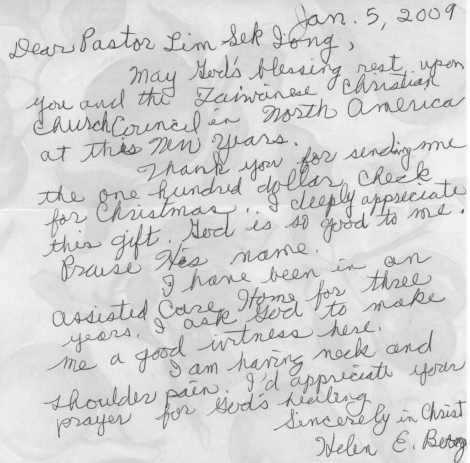 Jan. 5, 2009
Dear Pastor Lim Sek Iong,
May God's blessing rest upon
you and the Taiwanese Christian
Church Council in North America
at this New Years.
Thank you for sending me
the one hundred dollar check
for Christmas.. I deeply appreciate
this gift. God is so good to me.
Praise His name.
I have been in an
assisted Care Home for three
years. I ask God to make
me a good witness here.
I am having neck and
shoulder pain. I'd appreciate your
prayer for God's healing
Sincerely in Christ
Helen E.